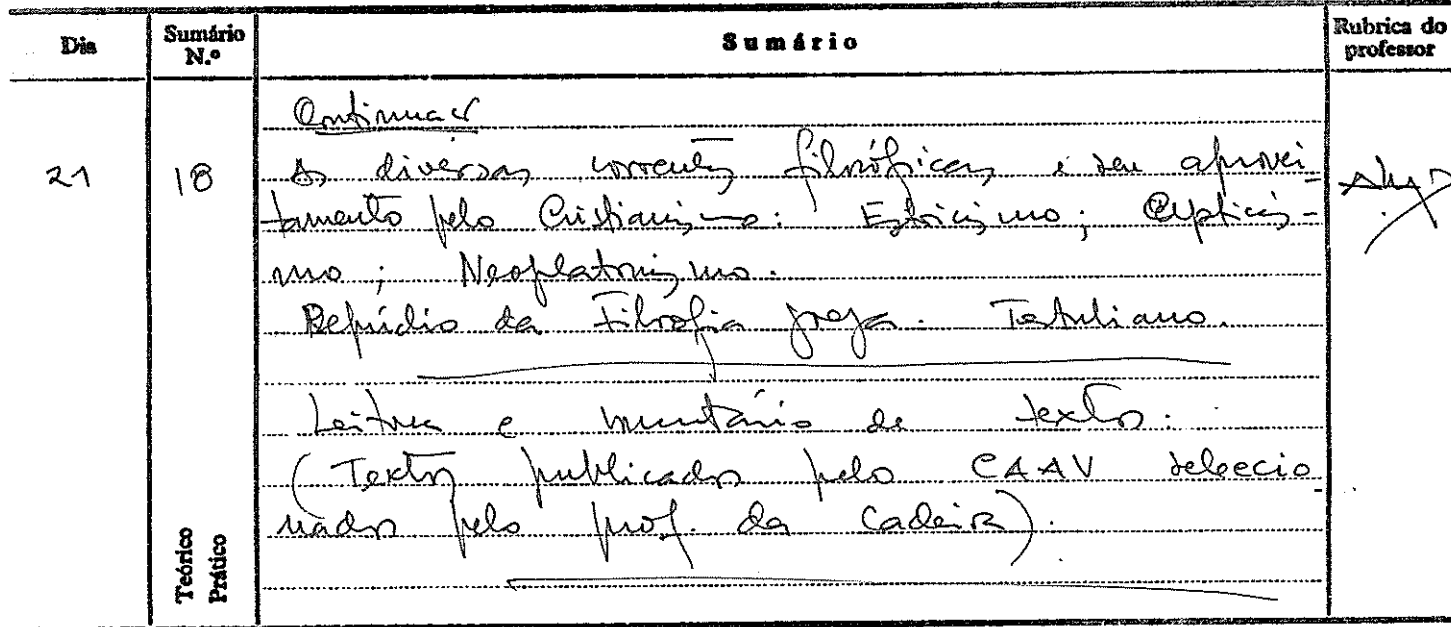 Dia
Sumário N.º
Sumário
Rubrica do professor
21
18
Teórico
Prático
Continuar
As diversas correntes filosóficas e seu aprovei-
tamento pelo Cristianismo: Estoicismo; Cepticis-
mo; Neoplatonismo.
Repúdio da Filosofia grega. Tertuliano.
Leitura e comentário de textos:
(Textos publicados pelo CAAV selecio
nados pelo prof. da Cadeira).